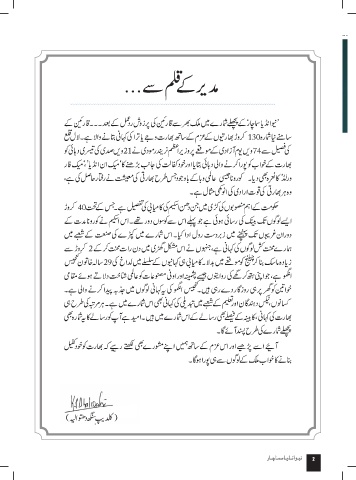 مدیر کے قلم سے ...
'نیو انڈیا سماچار' کے پچھلے شمارے میں ملک بھر سے قارئین کی پرجوش ردِعمل کے بعد ... قارئین کے
سامنے نیا شمارہ 130 کروڑ بھارتیوں کے عزم کے ساتھ بھارت وجے یاترا کی کہانی بتانے والا ہے۔ لال قلعے
کی فصیل سے 74 ویں یوم آزادی کے موقعے پر وزیر اعظم نریندر مودی نے 21 ویں صدی کی تیسری دہائی کو
بھارت کے خواب کو پورا کرنے والی دہائی بتایا اور خود کفالت کی جانب بڑھنے کا 'میک ان انڈیا'، میک فار
ورلڈ' کا نعرہ بھی دیا۔ کورونا جیسی عالمی وبا کے باوجود جس طرح بھارتی کی معیشت نے رفتار حاصل کی ہے،
وہ ہر بھارتی کی قوت ارادی کی انوکھی مثال ہے۔
حکومت کے اہم منصوبوں کی کڑی میں جن دھن اسکیم کی کامیابی کی تفصیل ہے۔ جس کے تحت 40 کروڑ
ایسے لوگوں تک بینک کی رسائی ہوئی ہے جو پہلے اس سے کوسوں دور تھے۔ اس اسکیم نے کورونا مدت کے
دوران غریبوں تک پہنچنے میں زبردست رول ادا کیا۔ اس شمارے میں کپڑے کی صنعت کے شعبے میں
ہمارے محنت کش لوگوں کی کہانی ہے، جنہوں نے اس مشکل گھڑی میں دن رات محنت کر کے 2 کروڑ سے
زیادہ ماسک بنا کر چیلنج کو موقعے میں بدلا۔ کامیابی کی کہانیوں کے سلسلے میں لداخ کی 29 سالہ خاتون
انگمو ہے، جو اپنی ہاتھ کرگھے کی روایتوں جیسے پشمینہ اور اونی مصنوعات کو عالمی شناخت دلاتے ہوئے مقامی
خواتین کو گھر پر ہی روزگار دے رہی ہیں۔ انگمو کی یہ کہانی لوگوں میں جذبہ پیدا کرنے والی ہے۔
کسانوں، ٹیکس دہندگان اور تعلیم کے شعبے میں تبدیلی کی کہانی بھی اس شمارے میں ہے۔ ہر مرتبہ کی طرح ہی
بھارت کی کہانی، کابینہ کے فیصلے بھی رسالے کے اس شمارے میں ہیں۔ امید ہے آپ کو رسالے کا یہ شمارہ بھی
پچھلے شمارے کی طرح پسند آئے گا۔
آیئے اسے پڑھیے اور اس عزم کے ساتھ ہمیں اپنے مشورے بھی لکھتے رہیے کہ بھارت کو خود کفیل
بنانے کا خواب ملک کے لوگوں سے ہی پورا ہوگا۔
(کلدیپ سنگھ دھتوالیہ)
نیو انڈیا سماچار 2